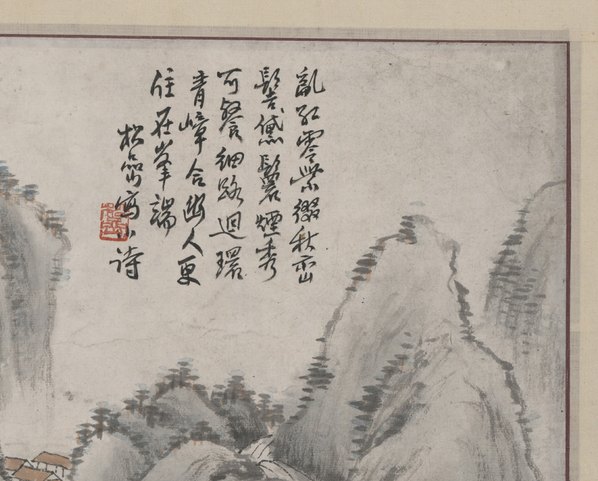 亂紅零紫綴秋巒
髻黛鬟煙秀
可餐細路迴環
青嶂合幽人更
住在峯端
松嵒寫詩